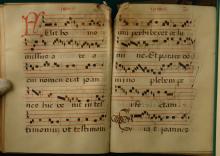 ho mo
missus a
nomen erat joan
nes hic ve nit in tes
timonium ut testimoni
um perhiberet de lu
mi ne. Et parare do
mi no plebem per
fe ctam.
joannes